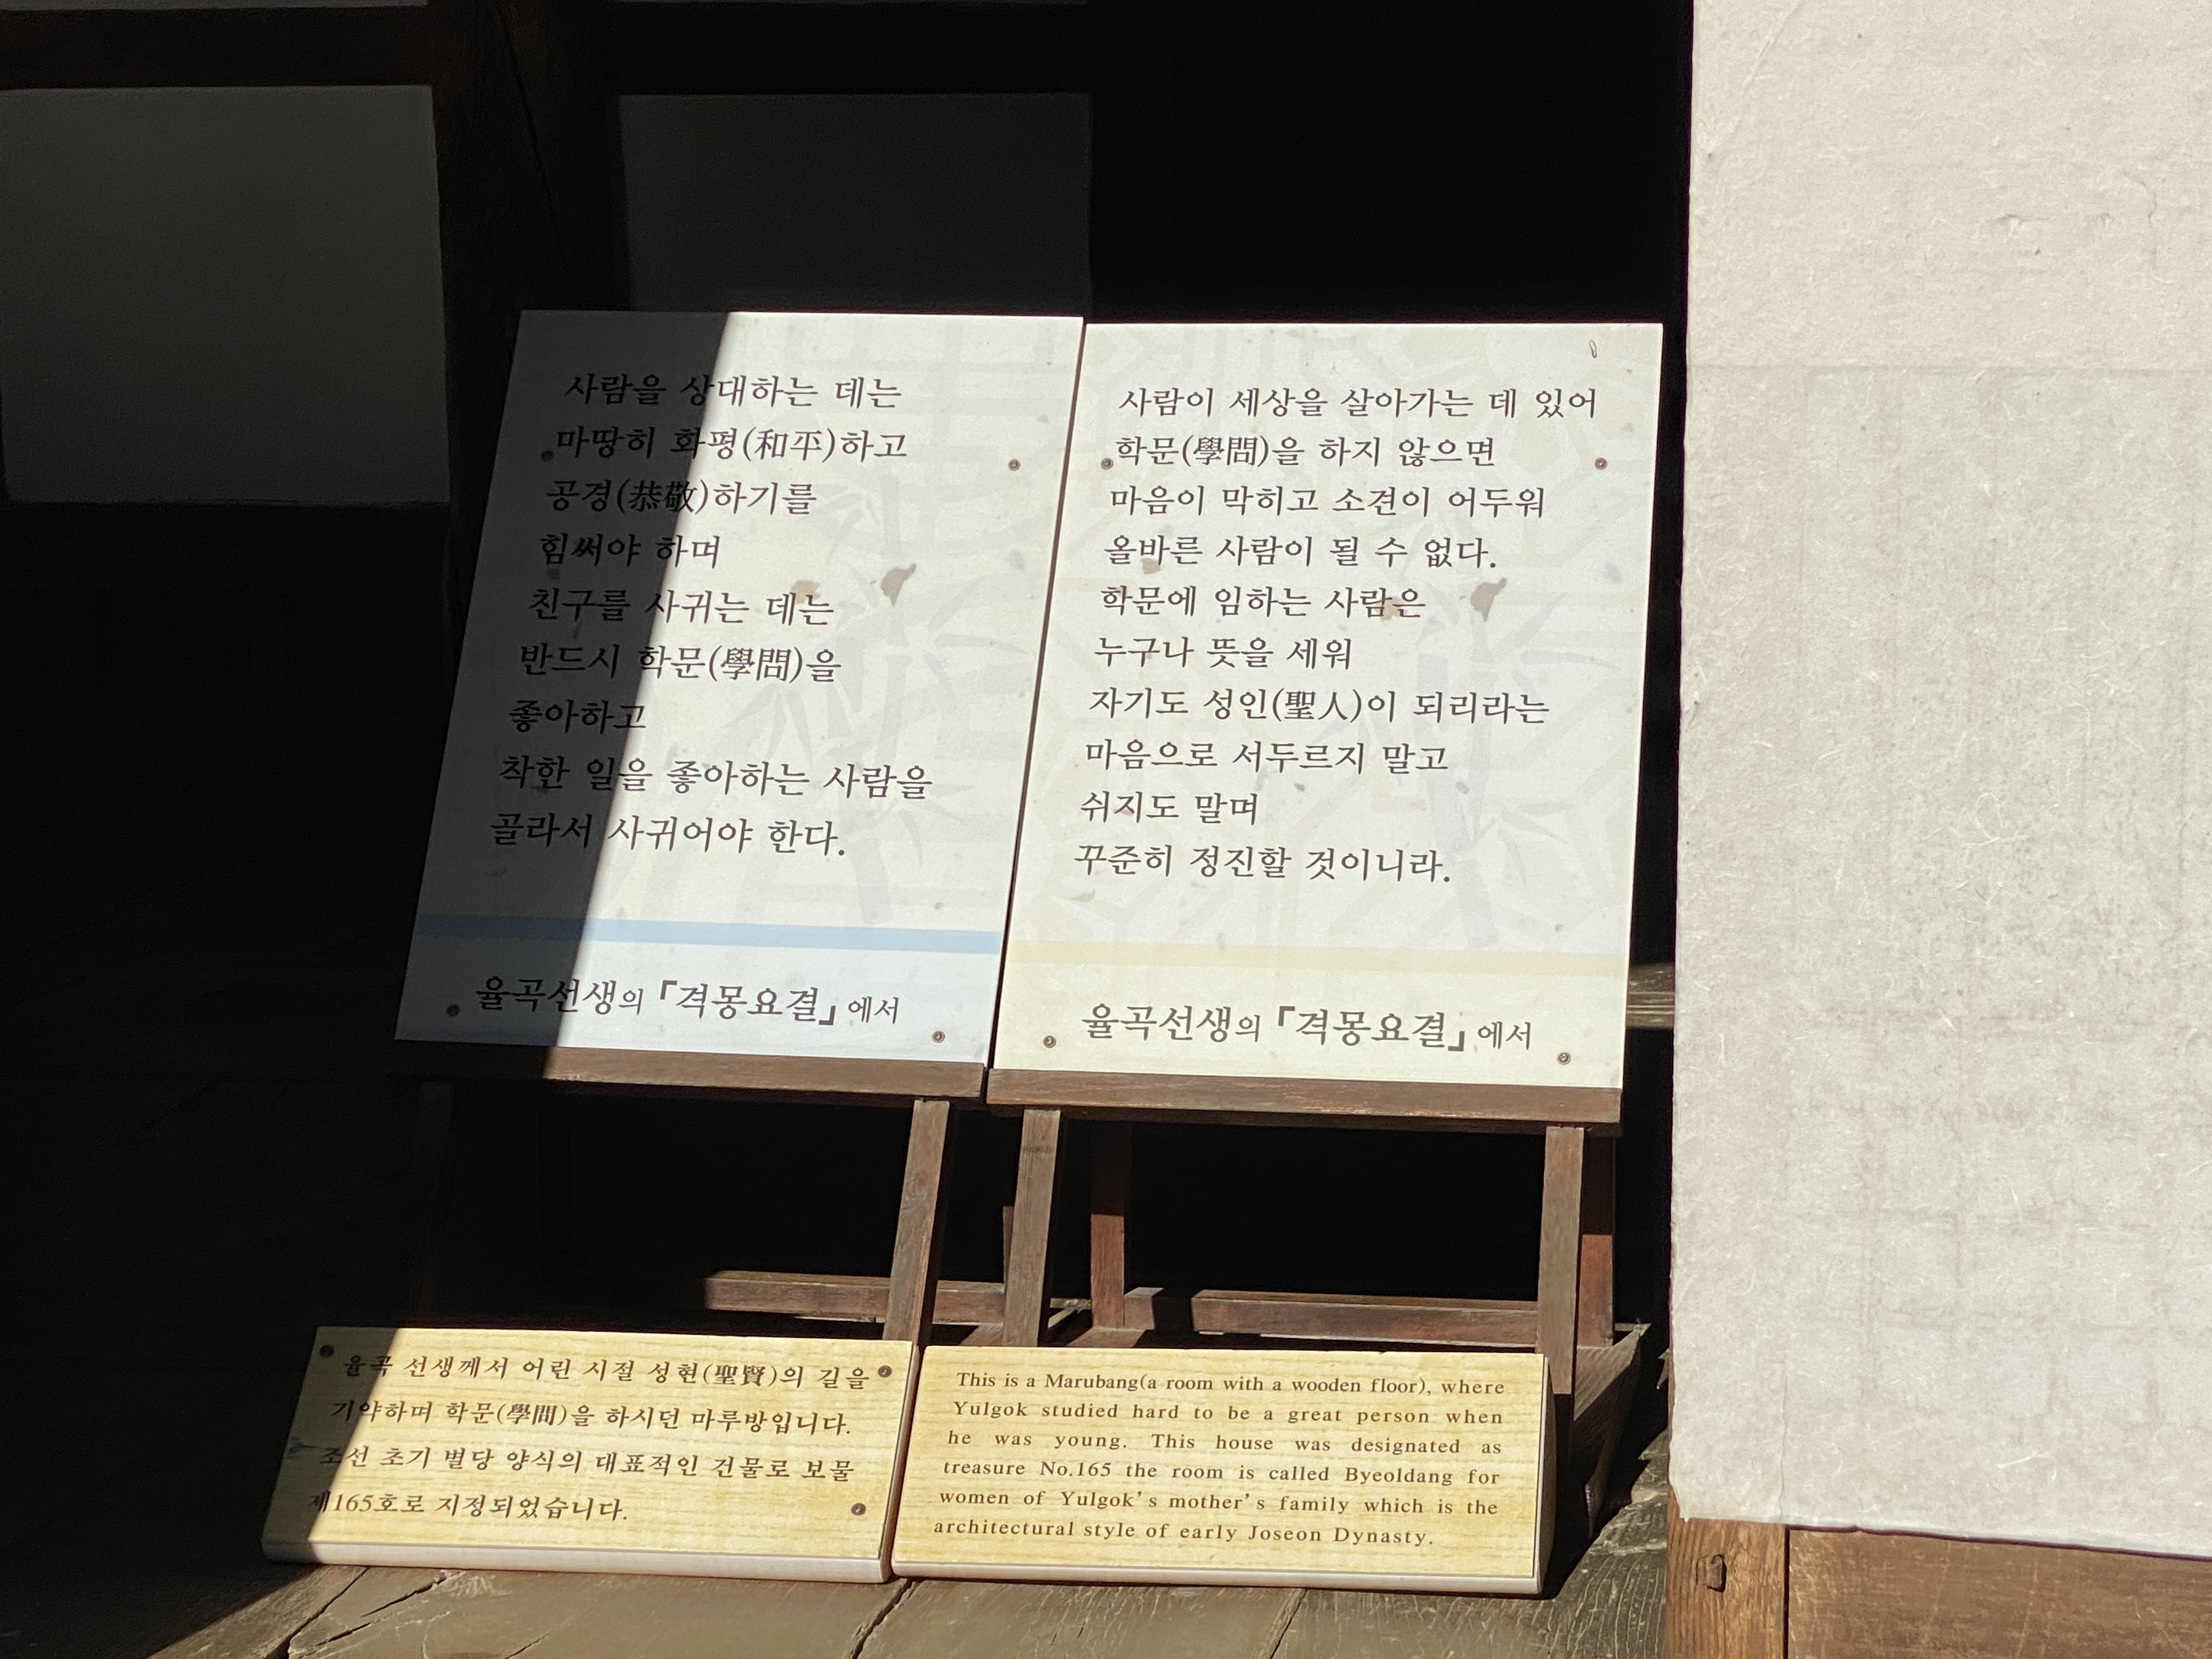 사람을 상대하는 데는
마땅히 화평(和平)하고
공경(恭敬)하기를
힘써야 하며
친구를 사귀는 데는
반드시 학문(學問)을
좋아하고
착한 일을 좋아하는 사람을
골라서 사귀어야 한다.
율곡선생의 「격몽요결」에서
사람이 세상을 살아가는 데 있어
학문(學問)을 하지 않으면
마음이 막히고 소견이 어두워
올바른 사람이 될 수 없다.
학문에 임하는 사람은
누구나 뜻을 세워
자기도 성인(聖人)이 되리라는
마음으로 서두르지 말고
쉬지도 말며
꾸준히 정진할 것이니라.
율곡선생의 「격몽요결」에서
율곡 선생께서 어린 시절 성현(聖賢)의 길을
기약하며 학문(學問)을 하시던 마루방입니다.
조선 초기 별당 양식의 대표적인 건물로 보물
제165호로 지정되었습니다.
This is a Marubang(a room with a wooden floor), where
Yulgok studied hard to be a great person when
he was young. This house was designated as
treasure No.165 the room is called Byeoldang for
women of Yulgok's mother's family which is the
architectural style of early Joseon Dynasty.